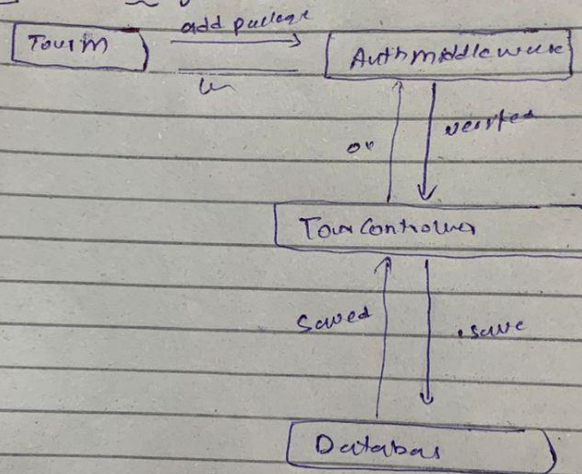 Tourm
add package
Authmiddleware
verified
ok
TourController
Saved
save
Databas